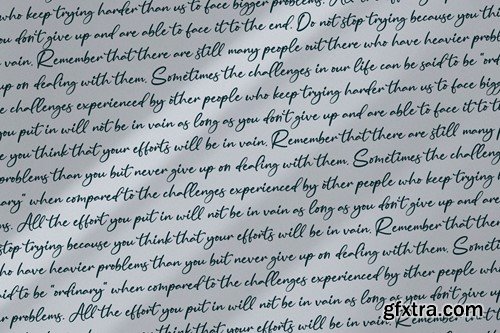 keep trying harder than us to face bigger problems. All the effort you
you don't give up and are able to face it to the end. Do not stop trying because you thi
in vain. Remember that there are still many people out there who have heavier probl
up on dealing with them. Sometimes the challenges in our life can be said to be "ord
the challenges experienced by other people who keep trying harder than us to face bigg
you put in will not be in vain as long as you don't give up and are able to face it to t
e you think that your efforts will be in vain. Remember that there are still many
problems than you but never give up on dealing with them. Sometimes the challeng
inary" when compared to the challenges experienced by other people who keep trying h
ms. All the effort you put in will not be in vain as long as you don't give up and are
stop trying because you think that your efforts will be in vain. Remember that there
who have heavier problems than you but never give up on dealing with them. Someti
said to be "ordinary" when compared to the challenges experienced by other people who
er problems. All the effort you put in will not be in vain as long as you don't give up
the end. Do not stop trying because you think that your efforts will be in vain. Remember
gfxtra.com